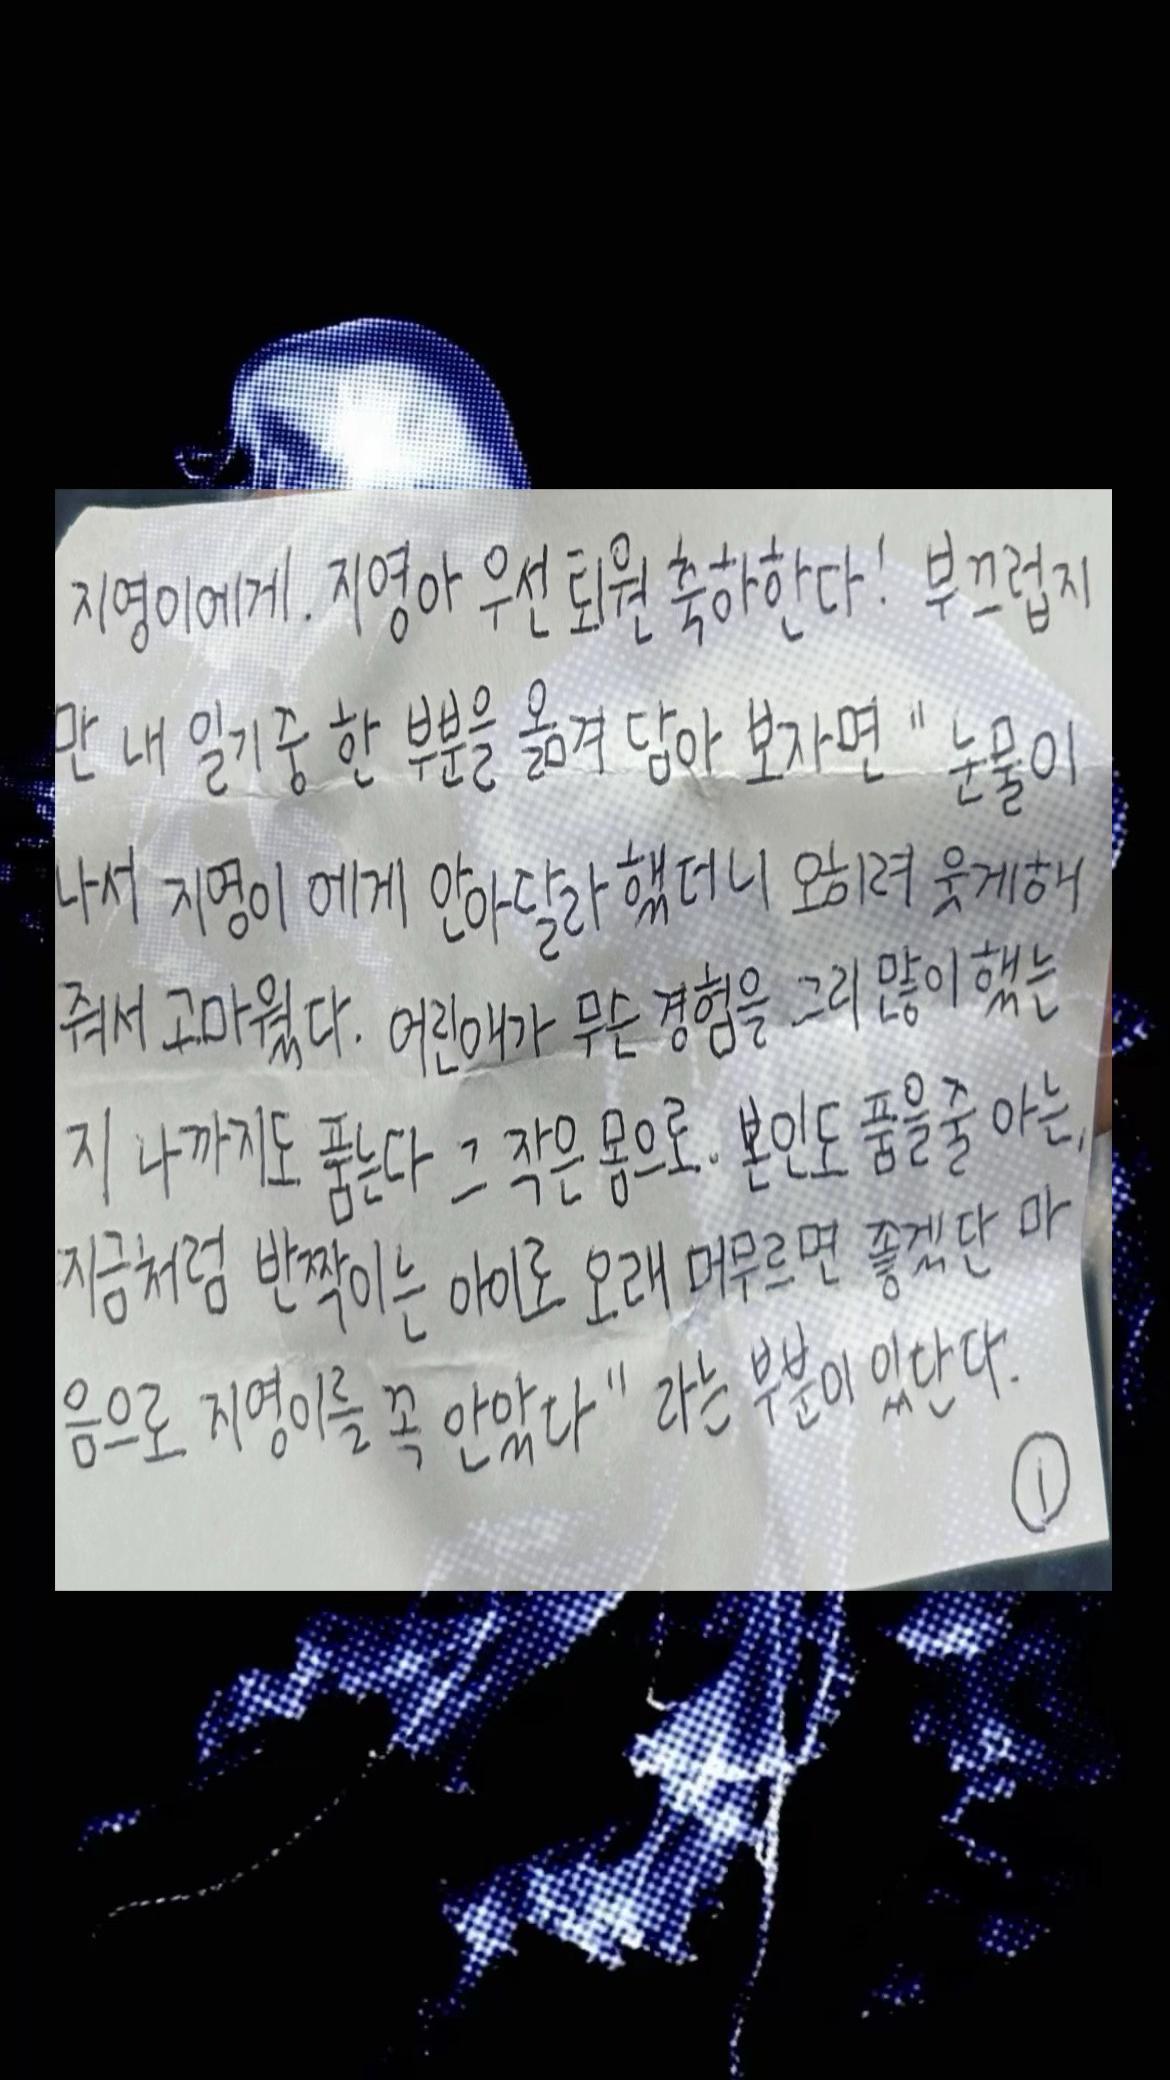 지영이에게. 지영아 우선 퇴원 축하한다! 부끄럽지
만 내 일기중 한 부분을 옮겨 담아 보자면 " 눈물이
나서 지영이 에게 안아달라 했더니 오히려 웃게해
줘서 고마웠다. 어린애가 무슨 경험을 그리 많이 했는
지 나까지도 품는다 그 작은 몸으로. 본인도 품을줄 아는,
지금처럼 반짝이는 아이로 오래 머무르면 좋겠단 마
음으로 지영이를 꼭 안았다" 라는 부분이 있단다.
①